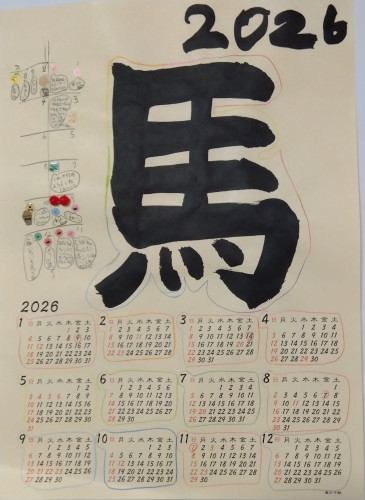 2026
馬
2026
1 日 月 火 水 木 金 土
1 2 3
4 5 6 7 8 9 10
11 12 13 14 15 16 17
18 19 20 21 22 23 24
25 26 27 28 29 30 31
2 日 月 火 水 木 金 土
1 2 3 4 5 6 7
8 9 10 11 12 13 14
15 16 17 18 19 20 21
22 23 24 25 26 27 28
3 日 月 火 水 木 金 土
1 2 3 4 5 6 7
8 9 10 11 12 13 14
15 16 17 18 19 20 21
22 23 24 25 26 27 28
29 30 31
4 日 月 火 水 木 金 土
1 2 3 4
5 6 7 8 9 10 11
12 13 14 15 16 17 18
19 20 21 22 23 24 25
26 27 28 29 30
5 日 月 火 水 木 金 土
1 2
3 4 5 6 7 8 9
10 11 12 13 14 15 16
17 18 19 20 21 22 23
24 25 26 27 28 29 30
31
6 日 月 火 水 木 金 土
1 2 3 4 5 6
7 8 9 10 11 12 13
14 15 16 17 18 19 20
21 22 23 24 25 26 27
28 29 30
7 日 月 火 水 木 金 土
1 2 3 4
5 6 7 8 9 10 11
12 13 14 15 16 17 18
19 20 21 22 23 24 25
26 27 28 29 30 31
8 日 月 火 水 木 金 土
1
2 3 4 5 6 7 8
9 10 11 12 13 14 15
16 17 18 19 20 21 22
23 24 25 26 27 28 29
30 31
9 日 月 火 水 木 金 土
1 2 3 4 5
6 7 8 9 10 11 12
13 14 15 16 17 18 19
20 21 22 23 24 25 26
27 28 29 30
10 日 月 火 水 木 金 土
1 2 3
4 5 6 7 8 9 10
11 12 13 14 15 16 17
18 19 20 21 22 23 24
25 26 27 28 29 30 31
11 日 月 火 水 木 金 土
1 2 3 4 5 6 7
8 9 10 11 12 13 14
15 16 17 18 19 20 21
22 23 24 25 26 27 28
29 30
12 日 月 火 水 木 金 土
1 2 3 4 5
6 7 8 9 10 11 12
13 14 15 16 17 18 19
20 21 22 23 24 25 26
27 28 29 30 31